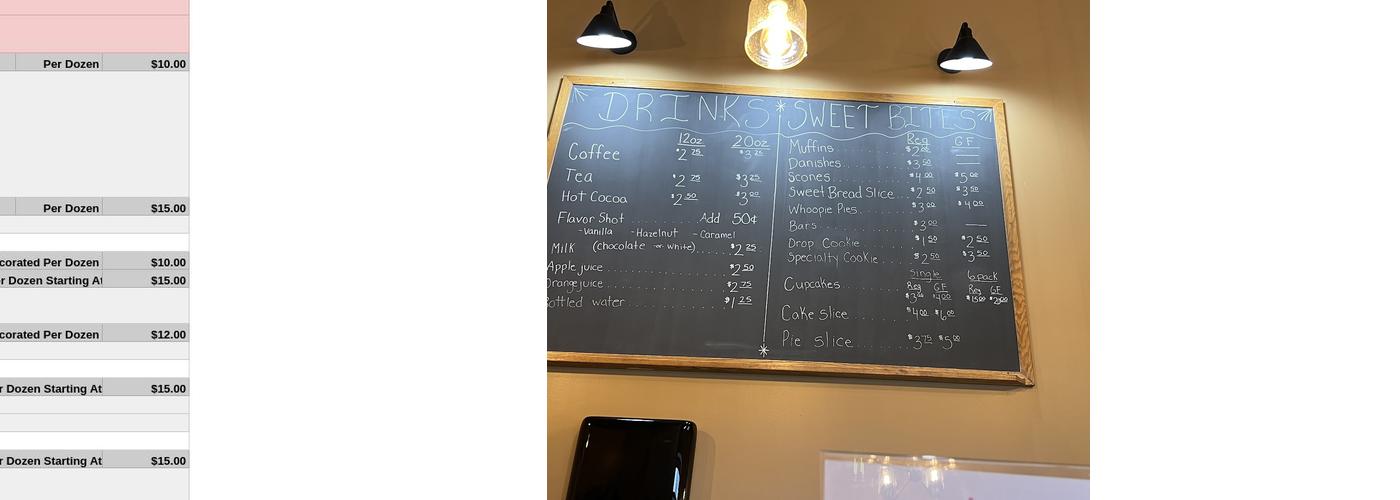 Per Dozen $10.00
Per Dozen $15.00
corated Per Dozen $10.00
r Dozen Starting At $15.00
corated Per Dozen $12.00
r Dozen Starting At $15.00
r Dozen Starting At $15.00
DRINKS
12oz 20oz
Coffee $2 75 $3 25
Tea $2 75 $3 25
Hot Cocoa $2 50 $3 00
Flavor Shot Add 50¢
-Vanilla -Hazelnut -Caramel
Milk (chocolate or white) $2 25
Apple juice $2 50
Orange juice $2 75
Bottled water $1 25
SWEET BITES
Reg GF
Muffins $2
Danishes $3 50
Scones $4 00 $5 00
Sweet Bread Slice $2 50 $3 50
Whoopie Pies $3 00 $4 00
Bars $3 00
Drop Cookie $1 50 $2 50
Specialty Cookie $2 50 $3 50
Single 6pack
Cupcakes Reg GF Reg GF
$4 00 $15 00
Cake slice $4 00 $6 00
Pie slice $3 75 $5 00